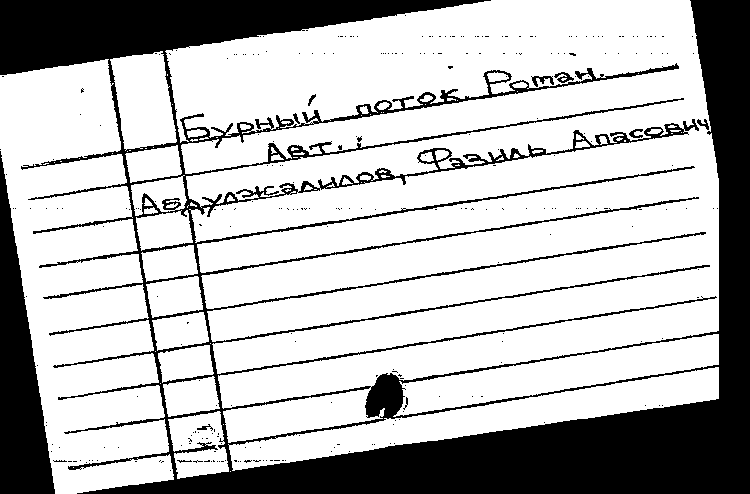 Бурный поток. Роман.
Авт.:
Абдулжалилов, Фазиль Апасович